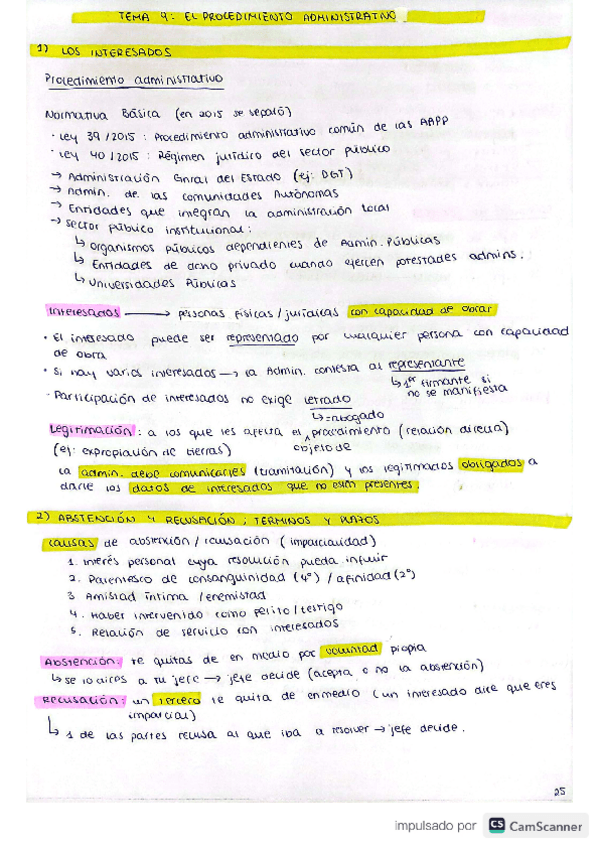 TEMA 4: EL PROCEDIMIENTO ADMINISTRATIVO
1) LOS INTERESADOS
Procedimiento administrativo
Normativa Básica (en 2015 se separó)
· Ley 39/2015: Procedimiento administrativo común de las AAPP
· Ley 40/2015: Régimen jurídico del sector público
→ Administración Gnral del Estado (ej: DGT)
→ Admin. de las comunidades Autónomas
→ Entidades que integran la administración local
→ Sector público institucional:
↳ Organismos públicos dependientes de Admin. Públicas
↳ Entidades de dcho privado cuando ejercen potestades admins.
↳ Universidades Públicas
Interesados → personas físicas/jurídicas con capacidad de obrar
· El interesado puede ser representado por cualquier persona con capacidad
de obra
· Si hay varios interesados → la Admin. contesta al representante
↳ 1er firmante si
no se manifiesta
· Participación de interesados no exige letrado
↳ = abogado
Legitimación: a los que les afecta el procedimiento (relación directa)
objeto de
(ej: expropiación de tierras)
La admin. debe comunicarles (tramitación) y los legitimados obligados a
darle los datos de interesados que no estén presentes.
2) ABSTENCIÓN Y RECUSACIÓN; TÉRMINOS Y PLAZOS
Causas de abstención/recusación (imparcialidad)
1. Interés personal cuya resolución pueda influir
2. Parentesco de consanguinidad (4º) / afinidad (2º)
3 Amistad íntima / enemistad
4. Haber intervenido como perito/testigo
5. Relación de servicio con interesados
Abstención: te quitas de en medio por voluntad propia
↳ se lo dices a tu jefe → jefe decide (acepta o no la abstención)
Recusación: un tercero te quita de enmedio (un interesado dice que eres
imparcial)
↳ 1 de las partes recusa al que iba a resolver → jefe decide.
25
impulsado por CS CamScanner